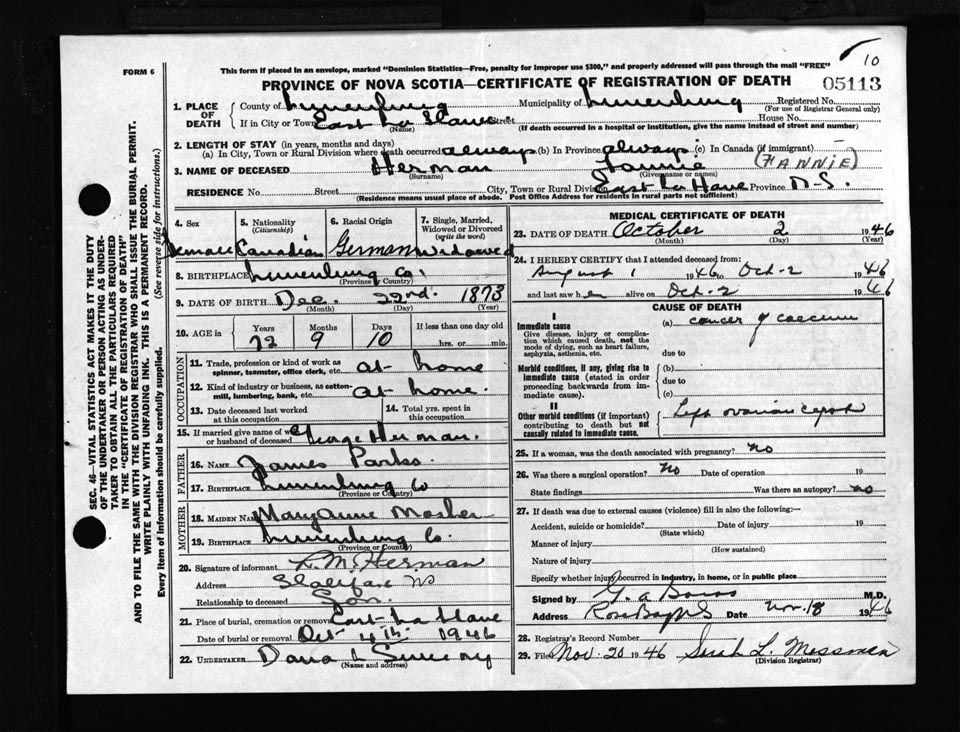 10
FORM 6
This form if placed in an envelope, marked "Dominion Statistics—Free, penalty for improper use $300," and properly addressed will pass through the mail "FREE"
PROVINCE OF NOVA SCOTIA—CERTIFICATE OF REGISTRATION OF DEATH
05113
1. PLACE OF DEATH
County of Lunenburg Municipality of Lunenburg Registered No.
(For use of Registrar General only)
If in City or Town East La Have Street House No.
(Name) (If death occurred in a hospital or institution, give the name instead of street and number)
2. LENGTH OF STAY (in years, months and days)
(a) In City, Town or Rural Division where death occurred always (b) In Province always (c) In Canada (if immigrant)
3. NAME OF DECEASED Herman Fannie (FANNIE)
(Surname) (Given name or names)
RESIDENCE No. Street City, Town or Rural Division East La Have Province N.S.
(Residence means usual place of abode. Post Office Address for residents in rural parts not sufficient)
4. Sex 5. Nationality 6. Racial Origin 7. Single, Married, Widowed or Divorced
(Citizenship) (write the word)
Female Canadian German Widowed
8. BIRTHPLACE Lunenburg Co.
(Province or Country)
9. DATE OF BIRTH Dec. 22nd. 1873
(Month) (Day) (Year)
10. AGE in Years Months Days If less than one day old
72 9 10 hrs. or min.
OCCUPATION
11. Trade, profession or kind of work as spinner, teamster, office clerk, etc. at home
12. Kind of industry or business, as cotton-mill, lumbering, bank, etc. at home.
13. Date deceased last worked at this occupation 14. Total yrs. spent in this occupation
15. If married give name of wife or husband of deceased George Herman.
FATHER
16. NAME James Parks
17. BIRTHPLACE Lunenburg Co
(Province or Country)
MOTHER
18. MAIDEN NAME Mary Anne Mosher
19. BIRTHPLACE Lunenburg Co.
(Province or Country)
20. Signature of informant L. M. Herman
Address Halifax NS
Relationship to deceased Son
21. Place of burial, cremation or removal East La Have
Date of burial or removal Oct 4th. 1946
22. UNDERTAKER Dana L Sweeny
(Name and address)
MEDICAL CERTIFICATE OF DEATH
23. DATE OF DEATH October 2 1946
(Month) (Day)
24. I HEREBY CERTIFY that I attended deceased from:
August 1 1946 to Oct-2 1946
and last saw her alive on Oct-2 1946
CAUSE OF DEATH
I
Immediate cause (a) cancer of caecum
Give disease, injury or complication which caused death, not the mode of dying, such as heart failure, asphyxia, asthenia, etc.
due to
Morbid conditions, if any, giving rise to immediate cause (stated in order proceeding backwards from immediate cause).
(b)
due to
(c)
II
Other morbid conditions (if important) contributing to death but not causally related to immediate cause.
Left ovarian
25. If a woman, was the death associated with pregnancy? no
26. Was there a surgical operation? no Date of operation 19
State findings Was there an autopsy? no
27. If death was due to external causes (violence) fill in also the following:—
Accident, suicide or homicide? Date of injury 19
(State which)
Manner of injury
(How sustained)
Nature of injury
Specify whether injury occurred in industry, in home, or in public place
Signed by G. A. M.D.
Address Rose Bay NS Date Nov. 18 1946
28. Registrar's Record Number
29. Filed Nov. 20 1946 Sarah L. Mossman
(Division Registrar)
SEC. 46—VITAL STATISTICS ACT MAKES IT THE DUTY
OF THE UNDERTAKER OR PERSON ACTING AS UNDERTAKER
TO OBTAIN ALL THE PARTICULARS REQUIRED
IN THE "CERTIFICATE OF REGISTRATION OF DEATH"
AND TO FILE THE SAME WITH THE DIVISION REGISTRAR WHO SHALL ISSUE THE BURIAL PERMIT.
WRITE PLAINLY WITH UNFADING INK. THIS IS A PERMANENT RECORD.
Every item of information should be carefully supplied. (See reverse side for instructions.)